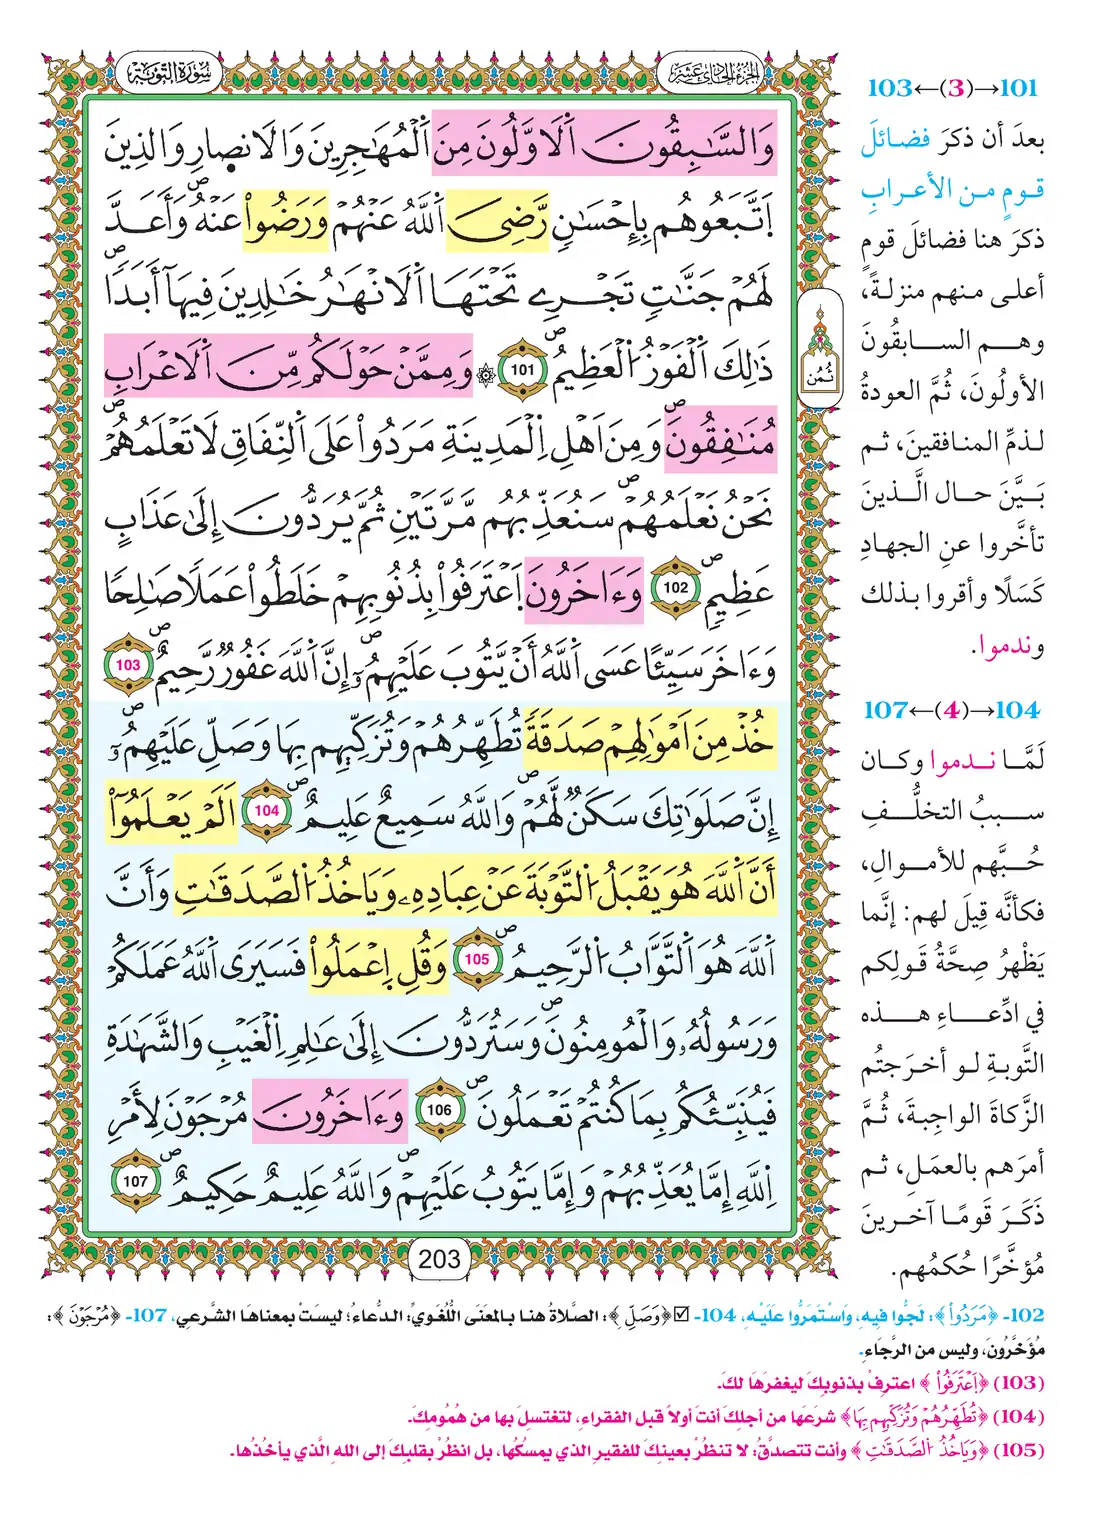 سُورَةُ التَّوْبَةِ
الجزء الحادي عشر
وَالسَّٰبِقُونَ اَ۬لَاوَّلُونَ مِنَ اَ۬لْمُهَٰجِرِينَ وَالَانص۪ارِ وَالذِينَ
اَ۪تَّبَعُوهُم بِإِحْسَٰنٖ رَّضِيَ اَ۬للَّهُ عَنْهُمْ وَرَضُواْ عَنْهُۖ وَأَعَدَّ
لَهُمْ جَنَّٰتٖ تَجْرِے تَحْتَهَا اَ۬لَانْهَٰرُ خَٰلِدِينَ فِيهَآ أَبَداٗۖ
ذَٰلِكَ اَ۬لْفَوْزُ اُ۬لْعَظِيمُۖ 101 ۞ وَمِمَّنْ حَوْلَكُم مِّنَ اَ۬لَاعْرَابِ
مُنَٰفِقُونَۖ وَمِنَ اَهْلِ اِ۬لْمَدِينَةِ مَرَدُواْ عَلَى اَ۬لنِّفَاقِ لَا تَعْلَمُهُمْۖ
نَحْنُ نَعْلَمُهُمْۖ سَنُعَذِّبُهُم مَّرَّتَيْنِ ثُمَّ يُرَدُّونَ إِلَىٰ عَذَابٍ
عَظِيمٖۖ 102 وَءَاخَرُونَ اَ۪عْتَرَفُواْ بِذُنُوبِهِمْ خَلَطُواْ عَمَلٗا صَٰلِحٗا
وَءَاخَرَ سَيِّئًا عَسَى اَ۬للَّهُ أَنْ يَّتُوبَ عَلَيْهِمُۥٓۖ إِنَّ اَ۬للَّهَ غَفُورٞ رَّحِيمٌۖ 103
خُذْ مِنَ اَمْوَٰلِهِمْ صَدَقَةٗ تُطَهِّرُهُمْ وَتُزَكِّيهِم بِهَا وَصَلِّ عَلَيْهِمُۥٓۖ
إِنَّ صَلَوَٰتِكَ سَكَنٞ لَّهُمْۖ وَاللَّهُ سَمِيعٌ عَلِيمٌۖ 104 اَلَمْ يَعْلَمُوٓاْ
أَنَّ اَ۬للَّهَ هُوَ يَقْبَلُ اُ۬لتَّوْبَةَ عَنْ عِبَادِهِۦ وَيَاخُذُ اُ۬لصَّدَقَٰتِ وَأَنَّ
اَ۬للَّهَ هُوَ اَ۬لتَّوَّابُ اُ۬لرَّحِيمُۖ 105 وَقُلِ اِ۪عْمَلُواْ فَسَيَرَى اَ۬للَّهُ عَمَلَكُمْ
وَرَسُولُهُۥ وَالْمُومِنُونَۖ وَسَتُرَدُّونَ إِلَىٰ عَٰلِمِ اِ۬لْغَيْبِ وَالشَّهَٰدَةِ
فَيُنَبِّئُكُم بِمَا كُنتُمْ تَعْمَلُونَۖ 106 وَءَاخَرُونَ مُرْجَوْنَ لِأَمْرِ
اِ۬للَّهِ إِمَّا يُعَذِّبُهُمْ وَإِمَّا يَتُوبُ عَلَيْهِمْۖ وَاللَّهُ عَلِيمٌ حَكِيمٌۖ 107
ثُمُن
203
103←(3)→101
بعدَ أن ذكرَ فضائلَ
قومٍ من الأعرابِ
ذكرَ هنا فضائلَ قومٍ
أعلى منهم منزلةً،
وهم السابقُونَ
الأولُونَ، ثُمَّ العودةُ
لذمِّ المنافقينَ، ثم
بَيَّنَ حال الَّذينَ
تأخَّروا عنِ الجهادِ
كَسَلًا وأقروا بذلك
وندموا.
107←(4)→104
لَمَّا ندموا وكان
سببُ التخلُّفِ
حُبَّهم للأموالِ،
فكأنَّه قِيلَ لهم: إنَّما
يَظْهرُ صِحَّةُ قولِكم
في ادِّعاءِ هذه
التَّوبةِ لو أخرجتُم
الزَّكاةَ الواجِبةَ، ثُمَّ
أمرَهم بالعمَلِ، ثم
ذَكَرَ قَومًا آخرينَ
مُؤخَّرًا حُكمُهم.
102- ﴿مَرَدُواْ﴾: لَجُّوا فيهِ، وَاسْتَمَرُّوا عَلَيْهِ، 104- ☑﴿وَصَلِّ﴾: الصَّلاةُ هنا بالمَعْنَى اللُّغَويِّ: الدُّعاءُ؛ ليسَتْ بمعناهَا الشَّرعي، 107- ﴿مُرْجَوْنَ﴾:
مُؤَخَّرُونَ، وليس من الرَّجَاءِ.
(103) ﴿اَ۪عْتَرَفُواْ﴾ اعترِفْ بذنوبِكَ ليغفرَهَا لكَ.
(104) ﴿تُطَهِّرُهُمْ وَتُزَكِّيهِم بِهَا﴾ شرعَها من أجلِكَ أنتَ أولاً قبل الفقراءِ، لتغتسلَ بها من هُمُومِكَ.
(105) ﴿وَيَاخُذُ اُ۬لصَّدَقَٰتِ﴾ وأنت تتصدقُ: لا تنظرْ بعينِكَ للفقيرِ الذي يمسكُها، بل انظُرْ بقلبِكَ إلى اللهِ الَّذي يأخُذُها.